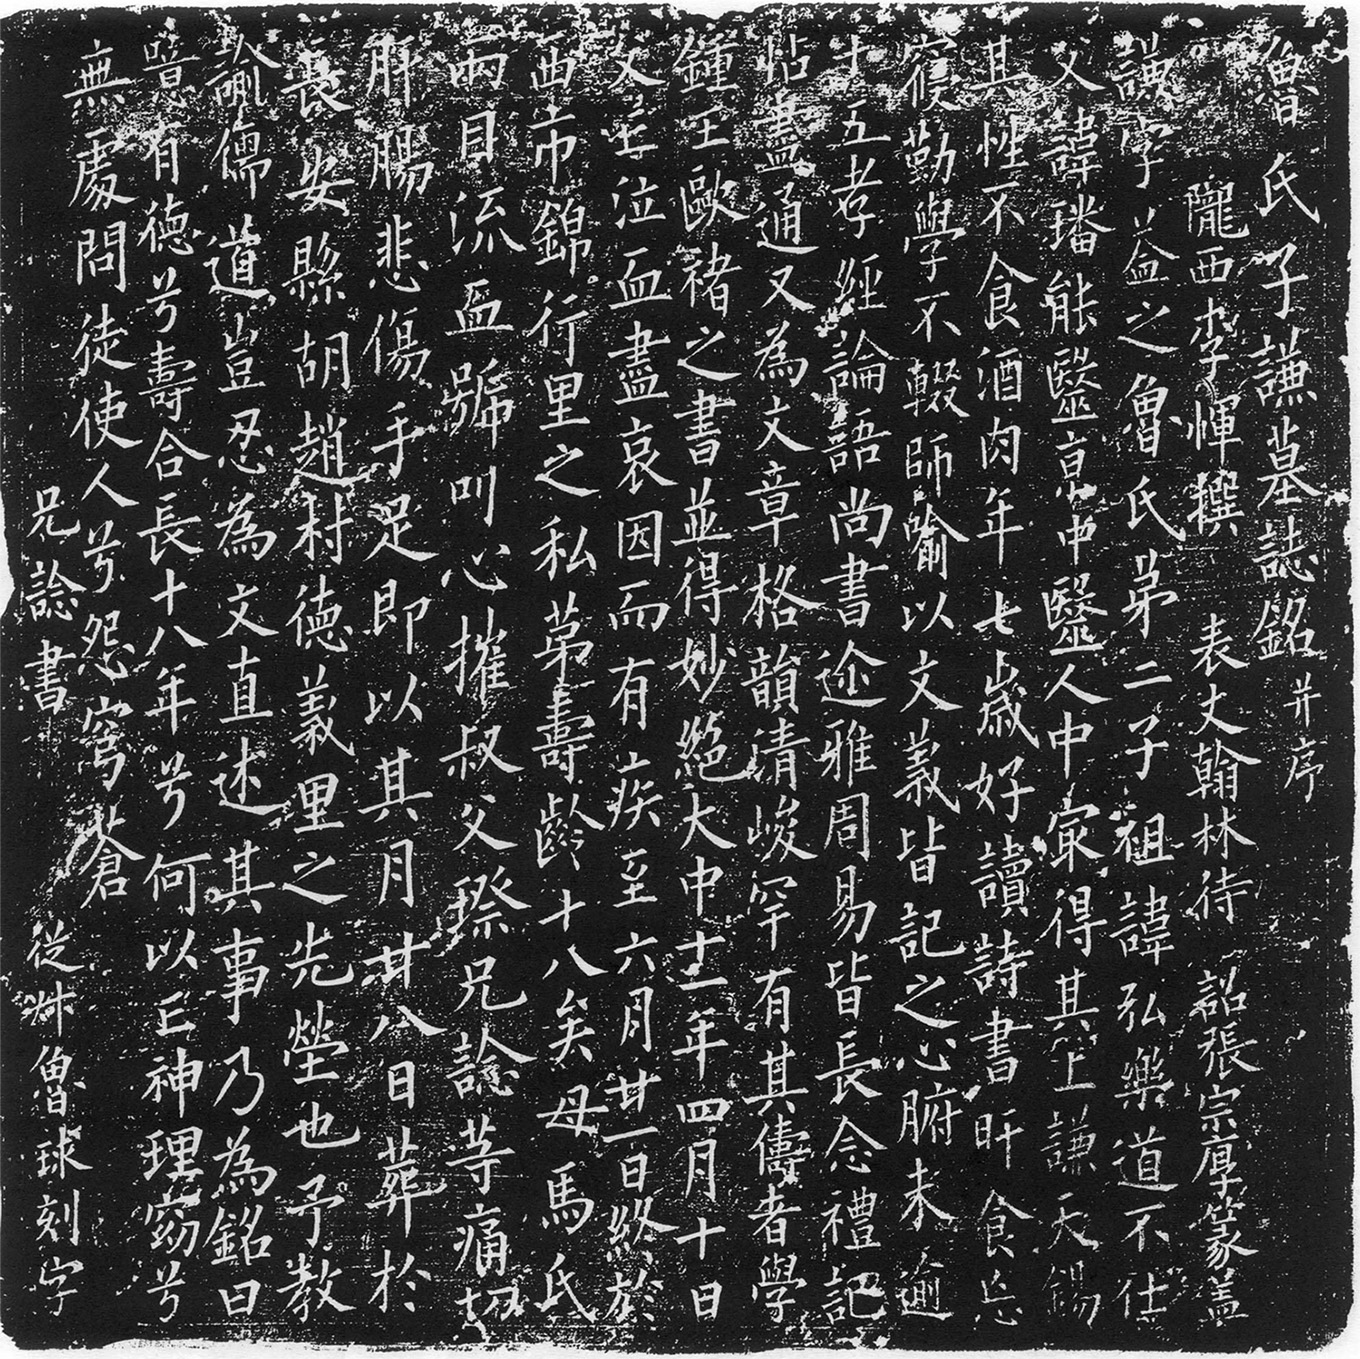 魯氏子謙墓誌銘并序
隴西李惲撰　表丈翰林待詔張宗厚篆蓋
謙字益之魯氏弟二子祖諱弘樂道不仕
父諱璠能毉京中毉人中冣得其上謙天錫
其性不食酒肉年七歲好讀詩書旰食忘
寢勤學不輟師喻以文義皆記之心腑未逾
十五孝經論語尚書尒雅周易皆長念禮記
帖盡通又為文章格韻清峻罕有其儔者學
鍾王歐褚之書並得妙絕大中十二年四月十日
父亡泣血盡哀因而有疾至六月廿一日終於
西市錦行里之私苐壽齡十八矣母馬氏
兩目流血號叫心摧叔父璨兄諗等痛切
肝腸悲傷手足即以其月廿八日葬於
長安縣胡趙村德義里之先塋也予教
諭儒道豈忍為文直述其事乃為銘曰
噫有德兮壽合長十八年兮何以亡神理窈兮
無處問徒使人兮怨穹蒼
兄諗書　從叔魯球刻字